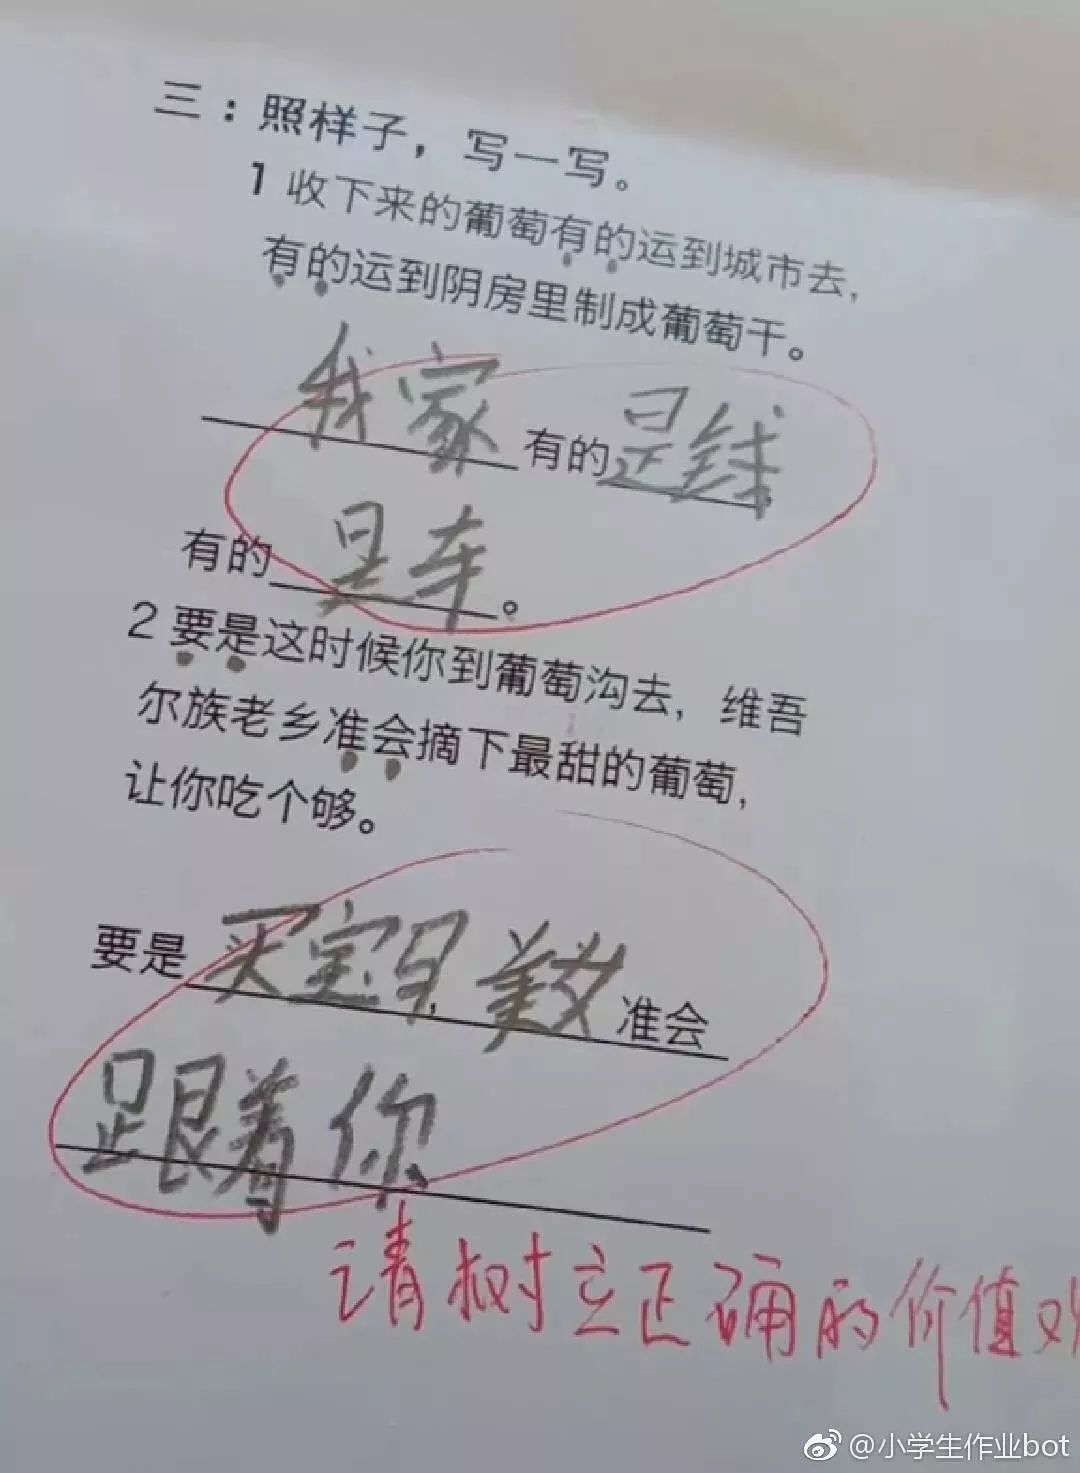 三：照样子，写一写。
1 收下来的葡萄有的运到城市去，
有的运到阴房里制成葡萄干。
我家有的是钱，
有的是车。
2 要是这时候你到葡萄沟去，维吾
尔族老乡准会摘下最甜的葡萄，
让你吃个够。
要是买宝马，美女准会
跟着你
请树立正确的价值观
@小学生作业bot